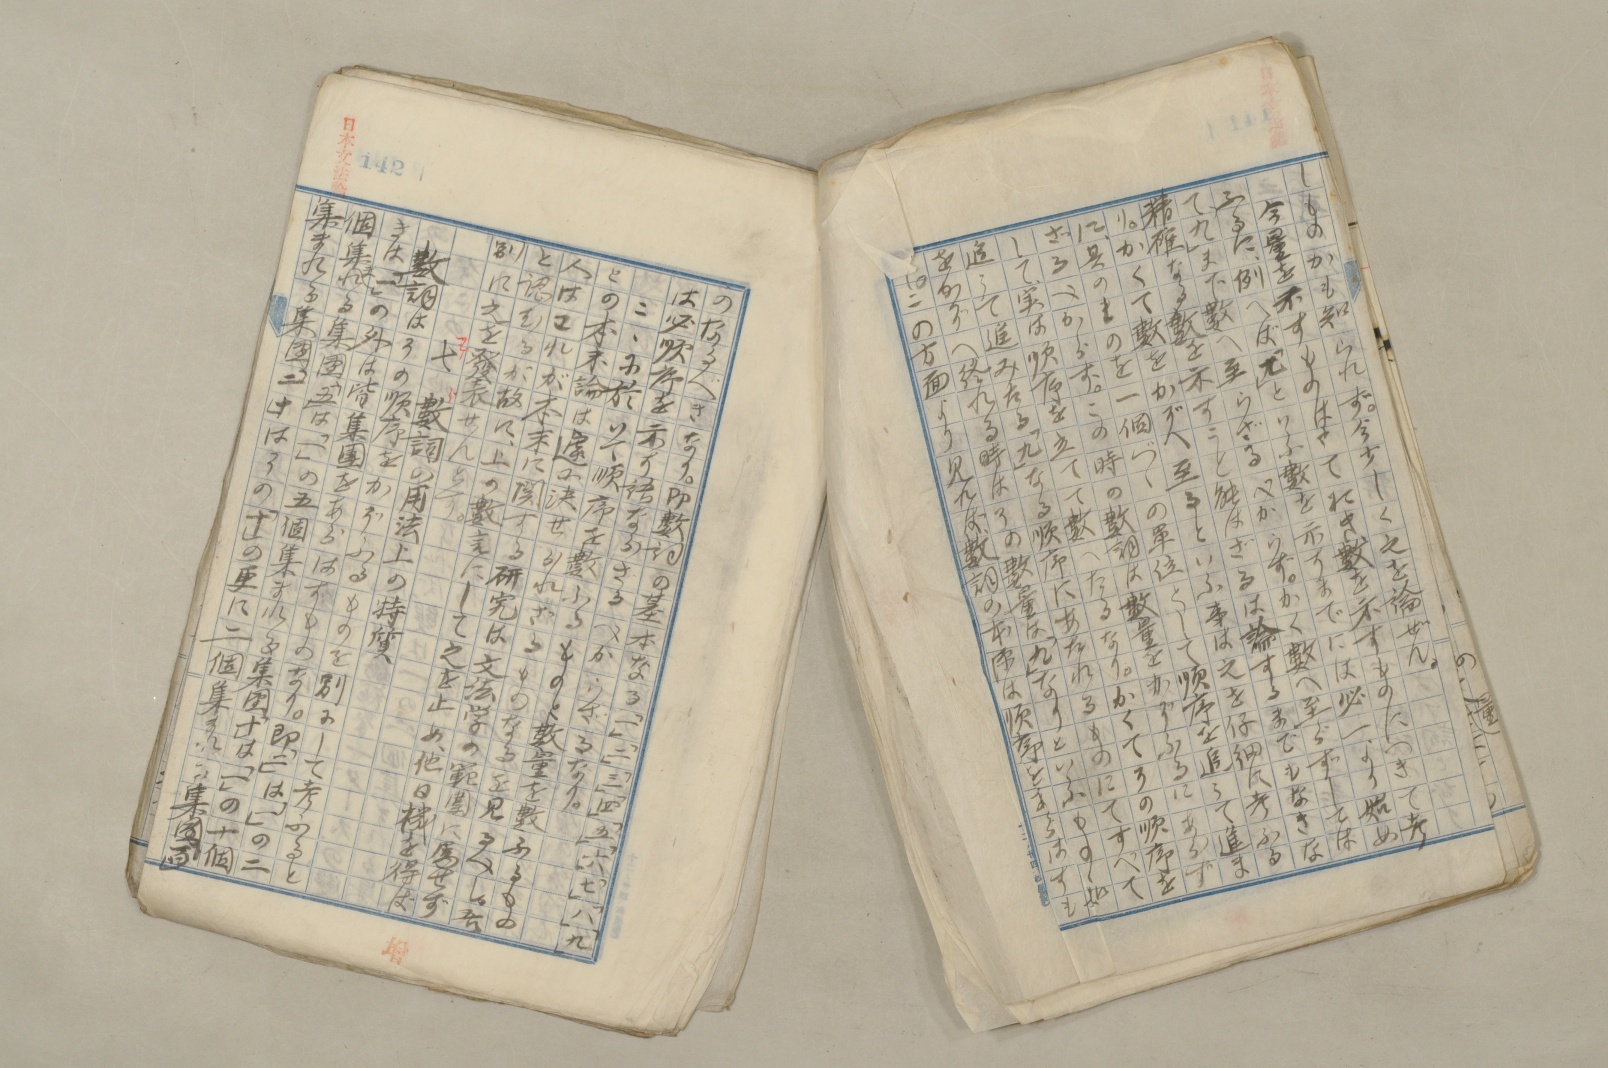 しものかも知られず。今少しく之を論ぜん。
今量を示すものはさておき數を示すものにつきて考
ふるに、例へば「九」といふ數を示すまでには必一より始め
て九まで數へ至らざるべからず。かく數へ至らずしては
精確なる數を示すこと能はざるは論ずるまでもなきな
り。かくて數をかぞへ至るといふ事は之を仔細に考ふる
に其のものを一個づゝの單位として順序を追うて進ま
ざるべからず。この時の數詞は數量をかぞふるにあらず
して実は順序を立てて數へたるなり。かくてその順序を
追うて進みたる「九」なる順序にあたれるものにてすべて
をかぞへ終れる時はその數量は「九」なりといふもの
この方面より見れば數詞の本原は順序をあらはすも
142
日本文法論
のなるべきなり。即數詞の基本なる「一」「二」「三」「四」「五」「六」「七」「八」「九」
は必順序を示す語ならざるべからざるなり。
こゝに於いて順序を數ふるものと數量を數ふるもの
との本末論は遽に決せられざるものなるを見るべし。吾
人はこれが本末に関する研究は文法学の範圍に属せず
と認むるが故に、上の數言にして之を止め、他日機を得ば
別に之を發表せんとす。
數詞の用法上の特質
數詞はその順序をかぞふるものを別にして考ふると
きは「一」の外は皆集團をあらはすものなり。即「二」は「一」の二
個集まれる集團「五」は「一」の五個集まれる集團「十」は「一」の十個
集まれる集團「二十」はその「十」の更に二個集まれる集團「百」
増